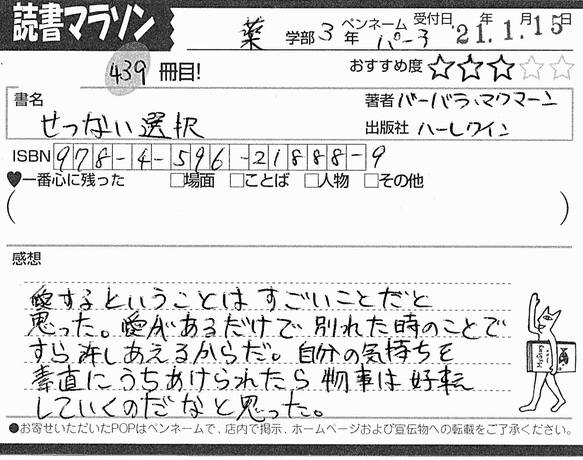 読書マラソン
薬 学部 3 年 ペンネーム パー子 受付日 '21.年1.月15日
439 冊目! おすすめ度 ☆☆☆☆☆
書名 せつない選択 著者 バーバラ・マクマーン
出版社 ハーレクイン
ISBN 978-4-596-21888-9
♥一番心に残った □場面 □ことば □人物 □その他
( )
感想
愛するということはすごいことだと
思った。愛があるだけで別れた時のことで
すら許しあえるからだ。自分の気持ちを
素直にうちあけられたら物事は好転
していくのだなと思った。
●お寄せいただいたPOPはペンネームで、店内で掲示、ホームページおよび宣伝物への転載をご了承ください。